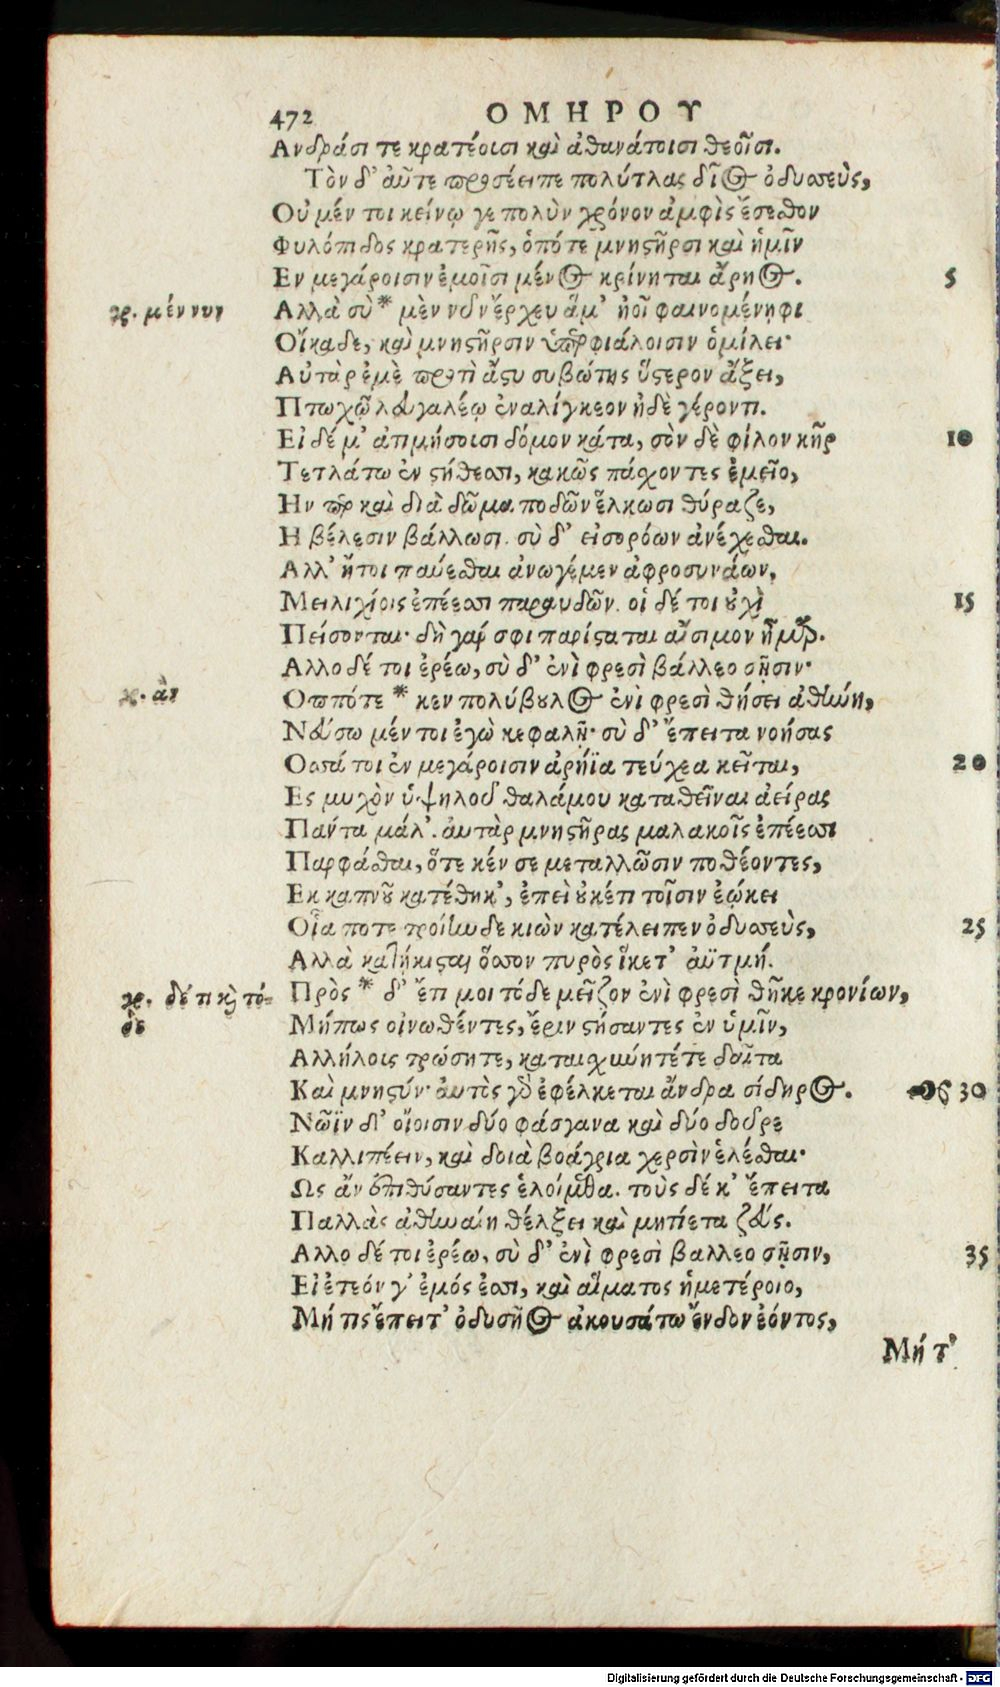 472 ΟΜΗΡΟΥ
Ανδράσι τε κρατέοισι καὶ ἀθανάτοισι θεοῖσι.
Τὸν δ' αὖτε προσέειπε πολύτλας δῖος ὀδυσσεὺς,
Οὐ μέν τοι κείνῳ γε πολὺν χρόνον ἀμφὶς ἔσεσθον
Φυλόπιδος κρατερῆς, ὁπότε μνηστῆρσι καὶ ἡμῖν
Εν μεγάροισιν ἐμοῖσι μένος κρίνηται ἄρηος. 5
γρ. μέν νυν Αλλὰ σὺ * μὲν νῦν ἔρχευ ἅμ' ἠοῖ φαινομένηφι
Οἴκαδε, καὶ μνηστῆρσιν ὑπερφιάλοισιν ὁμίλει·
Αὐτὰρ ἐμὲ προτὶ ἄστυ συβώτης ὕστερον ἄξει,
Πτωχῷ λευγαλέῳ ἐναλίγκεον ἠδὲ γέροντι.
Εἰ δέ μ' ἀτιμήσοισι δόμον κάτα, σὸν δὲ φίλον κῆρ 10
Τετλάτω ἐν στήθεσσι, κακῶς πάσχοντες ἐμεῖο,
Ην περ καὶ διὰ δῶμα ποδῶν ἕλκωσι θύραζε,
Η βέλεσιν βάλλωσι. σὺ δ' εἰσορόων ἀνέχεσθαι.
Αλλ' ἤτοι παύεσθαι ἀνωγέμεν ἀφροσυνάων,
Μειλιχίοις ἐπέεσσι παραυδῶν. οἱ δέ τοι οὐχὶ 15
Πείσονται· δὴ γάρ σφι παρίσταται αἴσιμον ἦμαρ.
Αλλο δέ τοι ἐρέω, σὺ δ' ἐνὶ φρεσὶ βάλλεο σῇσιν·
γρ. ἂν Οππότε * κεν πολύβουλος ἐνὶ φρεσὶ θήσει ἀθήνη,
Νεύσω μέν τοι ἐγὼ κεφαλῇ· σὺ δ' ἔπειτα νοήσας
Οσσά τοι ἐν μεγάροισιν ἀρήϊα τεύχεα κεῖται, 20
Ες μυχὸν ὑψηλοῦ θαλάμου καταθεῖναι ἀείρας
Πάντα μάλ'. αὐτὰρ μνηστῆρας μαλακοῖς ἐπέεσσι
Παρφάσθαι, ὅτε κέν σε μεταλλῶσιν ποθέοντες,
Εκ καπνοῦ κατέθηκ', ἐπεὶ οὐκέτι τοῖσιν ἐῴκει
Οἷα ποτε τροίηνδε κιὼν κατέλειπεν ὀδυσσεὺς, 25
Αλλὰ κατῄκισται ὅσσον πυρὸς ἵκετ' ἀϋτμή.
γρ. δέ τι καὶ τόδε Πρὸς * δ' ἔτι μοι τόδε μεῖζον ἐνὶ φρεσὶ θῆκε κρονίων,
Μήπως οἰνωθέντες, ἔριν στήσαντες ἐν ὑμῖν,
Αλλήλοις τρώσητε, καταισχύνητέ τε δαῖτα
Καὶ μνηστύν· αὐτὸς γὰρ ἐφέλκεται ἄνδρα σίδηρος. 30
Νῶϊν δ' οἴοισιν δύο φάσγανα καὶ δύο δοῦρε
Καλλιπέειν, καὶ δοιὰ βοάγρια χερσὶν ἑλέσθαι·
Ως ἂν ἐπιθύσαντες ἑλοίμεθα. τοὺς δέ κ' ἔπειτα
Παλλὰς ἀθηναίη θέλξει καὶ μητίετα ζεύς.
Αλλο δέ τοι ἐρέω, σὺ δ' ἐνὶ φρεσὶ βαλλεο σῇσιν, 35
Εἰ ἐτεόν γ' ἐμός ἐσσι, καὶ αἵματος ἡμετέροιο,
Μή τις ἔπειτ' ὀδυσῆος ἀκουσάτω ἔνδον ἐόντος,
Μή τ'
Digitalisierung gefördert durch die Deutsche Forschungsgemeinschaft - DFG